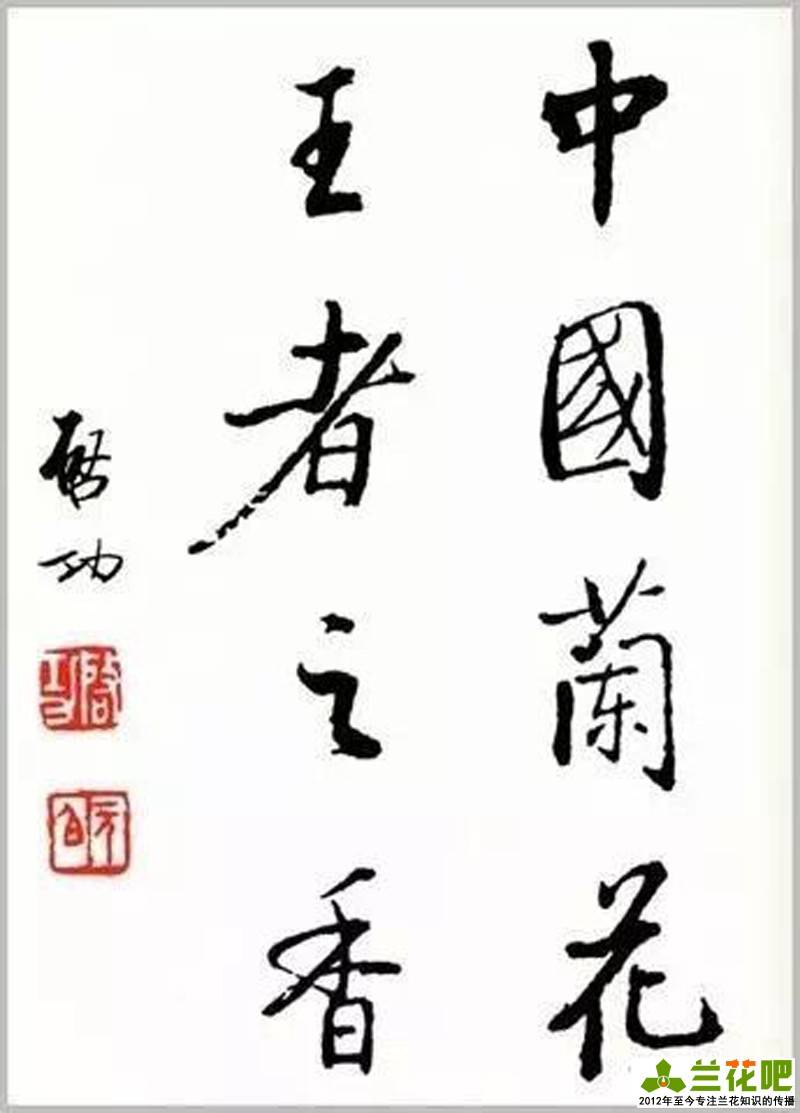 中國蘭花
王者之香
啓功
啓功
元白
兰花吧
2012年至今专注兰花知识的传播